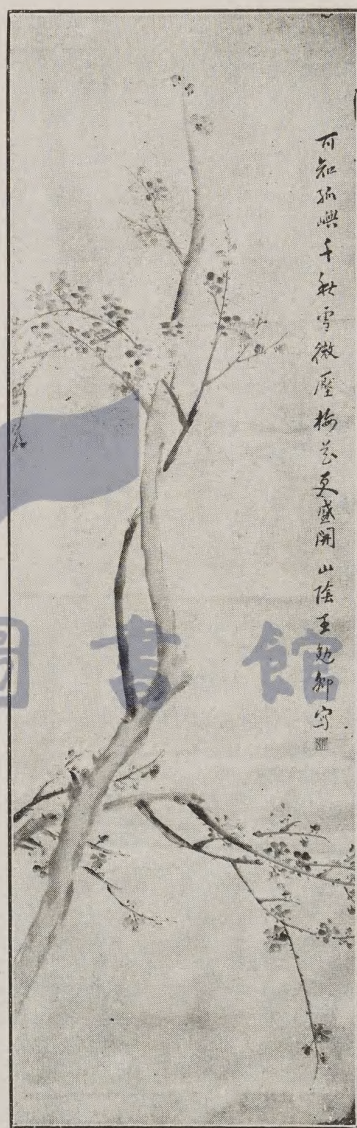 可知孤嶼千秋雪微壓梅花更盛開山陰王勉卿寫
圖書館